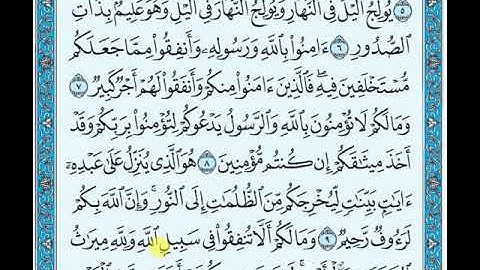 ٥ يُولِجُ ٱلَّيْلَ فِى ٱلنَّهَارِ وَيُولِجُ ٱلنَّهَارَ فِى ٱلَّيْلِ وَهُوَ عَلِيمٌۢ بِذَاتِ
ٱلصُّدُورِ ٦ ءَامِنُوا۟ بِٱللَّهِ وَرَسُولِهِۦ وَأَنفِقُوا۟ مِمَّا جَعَلَكُم
مُّسْتَخْلَفِينَ فِيهِ ۖ فَٱلَّذِينَ ءَامَنُوا۟ مِنكُمْ وَأَنفَقُوا۟ لَهُمْ أَجْرٌ كَبِيرٌ ٧
وَمَا لَكُمْ لَا تُؤْمِنُونَ بِٱللَّهِ وَٱلرَّسُولُ يَدْعُوكُمْ لِتُؤْمِنُوا۟ بِرَبِّكُمْ وَقَدْ
أَخَذَ مِيثَٰقَكُمْ إِن كُنتُم مُّؤْمِنِينَ ٨ هُوَ ٱلَّذِى يُنَزِّلُ عَلَىٰ عَبْدِهِۦٓ
ءَايَٰتٍۭ بَيِّنَٰتٍ لِّيُخْرِجَكُم مِّنَ ٱلظُّلُمَٰتِ إِلَى ٱلنُّورِ ۚ وَإِنَّ ٱللَّهَ بِكُمْ
لَرَءُوفٌ رَّحِيمٌ ٩ وَمَا لَكُمْ أَلَّا تُنفِقُوا۟ فِى سَبِيلِ ٱللَّهِ وَلِلَّهِ مِيرَٰثُ